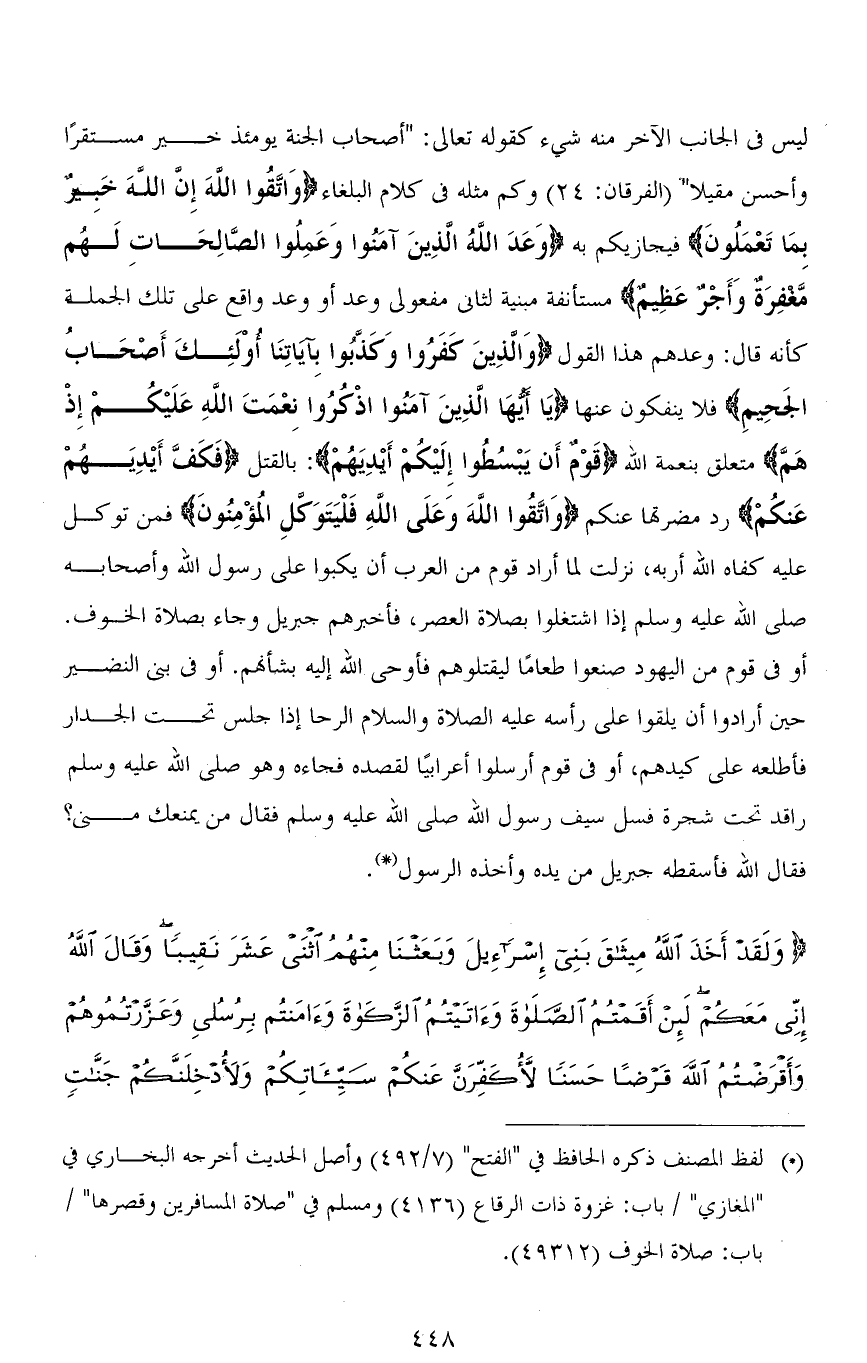 ليس فى الجانب الآخر منه شيء كقوله تعالى: "أصحاب الجنة يومئذ خير مستقرًا
وأحسن مقيلا" (الفرقان: ٢٤) وكم مثله فى كلام البلغاء ﴿وَاتَّقُوا اللَّهَ إِنَّ اللَّهَ خَبِيرٌ
بِمَا تَعْمَلُونَ﴾ فيجازيكم به ﴿وَعَدَ اللَّهُ الَّذِينَ آمَنُوا وَعَمِلُوا الصَّالِحَاتِ لَهُم
مَّغْفِرَةٌ وَأَجْرٌ عَظِيمٌ﴾ مستأنفة مبنية لثانى مفعولى وعد أو وعد واقع على تلك الجملة
كأنه قال: وعدهم هذا القول ﴿وَالَّذِينَ كَفَرُوا وَكَذَّبُوا بِآيَاتِنَا أُوْلَئِكَ أَصْحَابُ
الجَحِيمِ﴾ فلا ينفكون عنها ﴿يَا أَيُّهَا الَّذِينَ آمَنُوا اذْكُرُوا نِعْمَتَ اللَّهِ عَلَيْكُمْ إِذْ
هَمَّ﴾ متعلق بنعمة الله ﴿قَوْمٌ أَن يَبْسُطُوا إِلَيْكُمْ أَيْدِيَهُمْ﴾: بالقتل ﴿فَكَفَّ أَيْدِيَهُمْ
عَنكُمْ﴾ رد مضرتها عنكم ﴿وَاتَّقُوا اللَّهَ وَعَلَى اللَّهِ فَلْيَتَوَكَّلِ المُؤْمِنُونَ﴾ فمن توكل
عليه كفاه الله أربه، نزلت لما أراد قوم من العرب أن يكبوا على رسول الله وأصحابه
صلى الله عليه وسلم إذا اشتغلوا بصلاة العصر، فأخبرهم جبريل وجاء بصلاة الخوف.
أو فى قوم من اليهود صنعوا طعامًا ليقتلوهم فأوحى الله إليه بشأنهم. أو فى بنى النضير
حين أرادوا أن يلقوا على رأسه عليه الصلاة والسلام الرحا إذا جلس تحت الجدار
فأطلعه على كيدهم، أو فى قوم أرسلوا أعرابيًا لقصده فجاءه وهو صلى الله عليه وسلم
راقد تحت شجرة فسل سيف رسول الله صلى الله عليه وسلم فقال من يمنعك منى؟
فقال الله فأسقطه جبريل من يده وأخذه الرسول(*).
﴿ وَلَقَدْ أَخَذَ ٱللَّهُ مِيثَٰقَ بَنِىٓ إِسْرَٰٓءِيلَ وَبَعَثْنَا مِنْهُمُ ٱثْنَىْ عَشَرَ نَقِيبًاۖ وَقَالَ ٱللَّهُ
إِنِّى مَعَكُمْۖ لَئِنْ أَقَمْتُمُ ٱلصَّلَوٰةَ وَءَاتَيْتُمُ ٱلزَّكَوٰةَ وَءَامَنتُم بِرُسُلِى وَعَزَّرْتُمُوهُمْ
وَأَقْرَضْتُمُ ٱللَّهَ قَرْضًا حَسَنًا لَّأُكَفِّرَنَّ عَنكُمْ سَيِّـَٔاتِكُمْ وَلَأُدْخِلَنَّكُمْ جَنَّٰتٍ
(*) لفظ المصنف ذكره الحافظ في "الفتح" (٤٩٢/٧) وأصل الحديث أخرجه البخاري في
"المغازي" / باب: غزوة ذات الرقاع (٤١٣٦) ومسلم في "صلاة المسافرين وقصرها" /
باب: صلاة الخوف (٤٩٣١٢).
٤٤٨